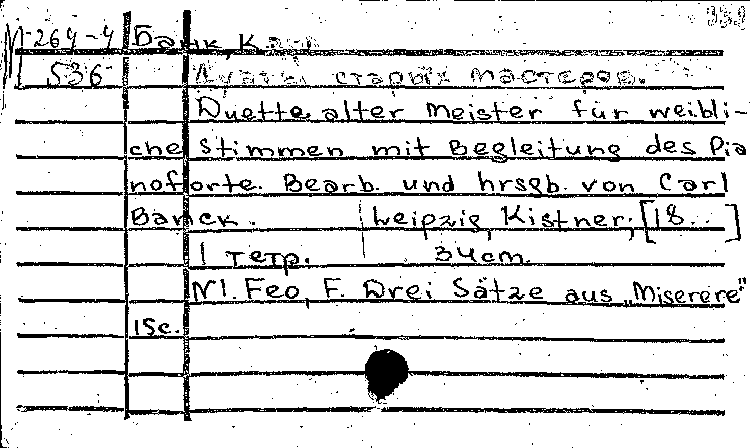 939
М-264-4 Банк, Карл
536 Дуэты старых мастеров.
Duette alter Meister für weibli-
che Stimmen mit Begleitung des Pia
noforte. Bearb. und hrsgb. von Carl
Banck. Leipzig, Kistner, [18..]
1 тетр. 34 cm.
N1. Feo, F. Drei Sätze aus „Miserere"
15c.